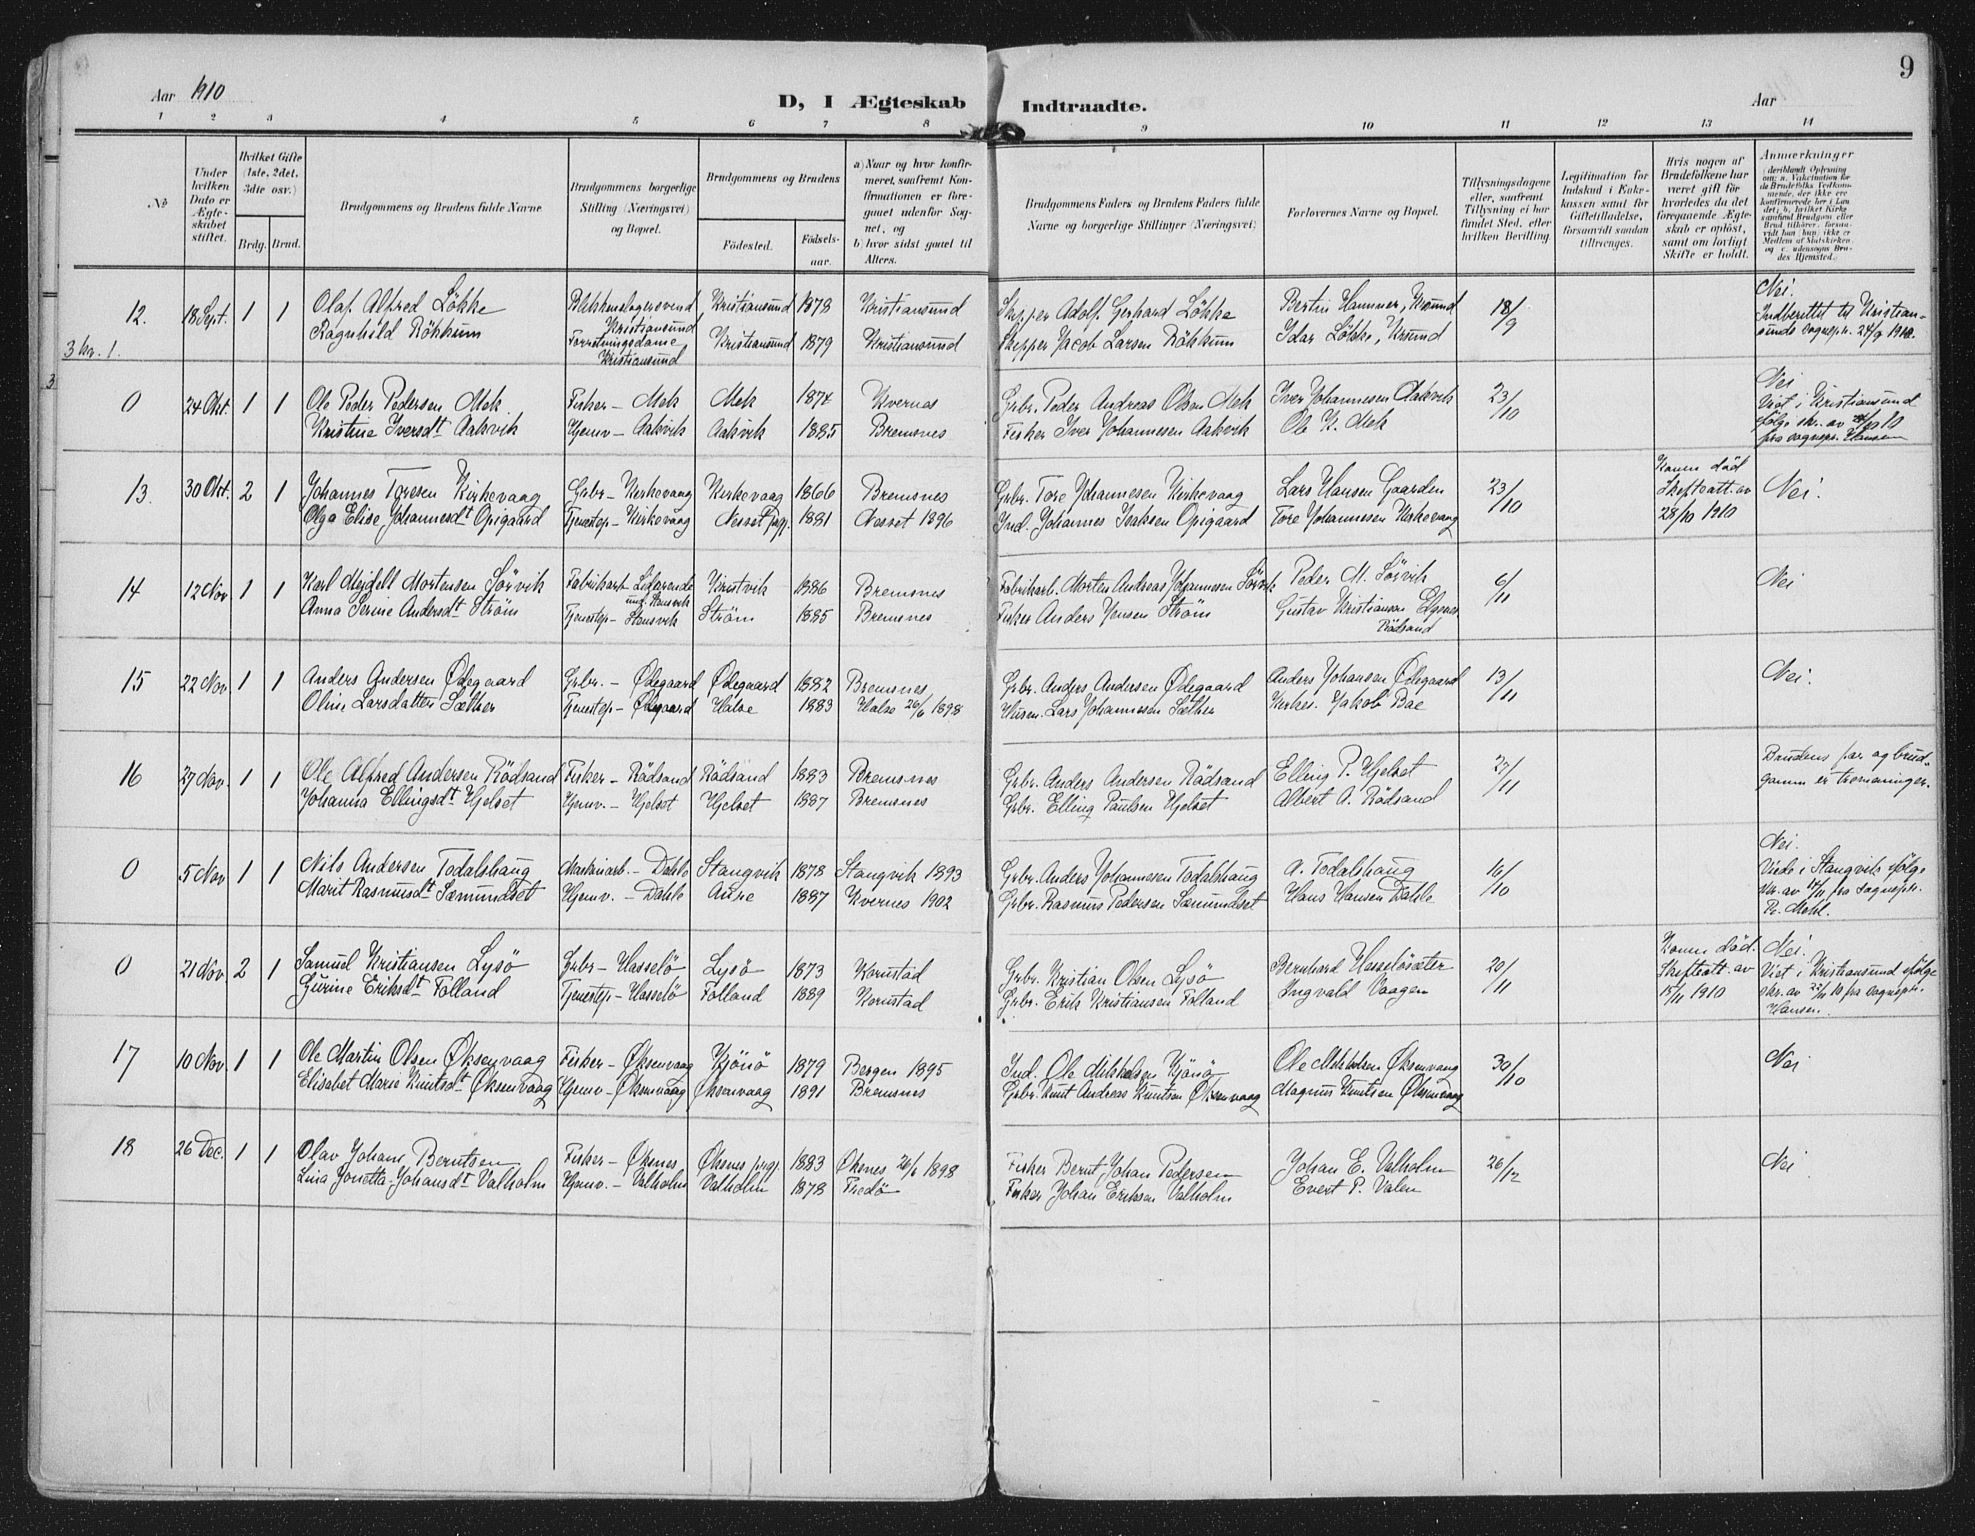 9
Aar 1910
D, I Ægteskab Indtraadte.
Aar
1 2 3 4 5 6 7 8 9 10 11 12 13 14
No
Under hvilken Dato er Ægteskabet stiftet.
Hvilket Gifte (1ste, 2det, 3die osv.)
Brdg. Brud.
Brudgommens og Brudens fulde Navne
Brudgommens borgerlige Stilling (Næringsvei) og Bopæl.
Brudgommens og Brudens
Fødested.
Fødselsaar.
a) Naar og hvor konfirmeret, saafremt Konfirmationen er foregaaet udenfor Sognet, og
b) hvor sidst gaaet til Alters.
Brudgommens Faders og Brudens Faders fulde Navne og borgerlige Stillinger (Næringsvei)
Forlovernes Navne og Bopæl.
Tillysningsdagene eller, saafremt Tillysning ei har fundet Sted, efter hvilken Bevilling.
Legitimation for Indskud i Enkekassen samt for Giftetilladelse, forsaavidt saadan tiltrænges.
Hvis nogen af Brudefolkene har været gift før hvorledes da det foregaaende Ægteskab er opløst, samt om lovligt Skifte er holdt.
Anmærkninger
12. 18 Sept. 1 1 Olaf Alfred Løkke Blikkenslagersvend Kristiansund Kristiansund 1878 Kristiansund Skipper Adolf Gerhard Løkke Bertin Hammer, Ksund 18/9 Nei. Indberettet til Kristiansunds sognepr. 24/9 1910.
3 kr. 1. Ragnhild Røkkum Forretningsdame Kristiansund Kristiansund 1879 Kristiansund Skipper Jacob Larsen Røkkum Idar Løkke, Krsund
0 24 Okt. 1 1 Ole Peder Pedersen Mek Fisker – Mek Mek 1874 Kvernes Grbr. Peder Andreas Olsen Mek Iver Johannesen Aakvik 23/10 Nei
Kristine Iversdt Aakvik Hjemv – Aakvik Aakvik 1885 Bremsnes Fisker Iver Johannesen Aakvik Ole K. Mek Viet i Kristiansund ifølge skr. av 24/10 10 fra sognepr. Hansen
13. 30 Okt. 2 1 Johannes Toresen Kirkevaag Grbr – Kirkevaag Kirkevaag 1866 Bremsnes Grbr. Tore Johannesen Kirkevaag Lars Hansen Gaarden 23/10 Konen død Skifteatt. av 28/10 1910 Nei.
Olga Elise Johannesdt Opigaard Tjenestep – Kirkevaag Nesset prgj. 1881 Nesset 1896 Ind. Johannes Isaksen Opigaard Tore Johannesen Kirkevaag
14 12 Nov 1 1 Karl Mejdell Mortensen Sørvik Fabrikarb. Kristvik 1886 Bremsnes Fabrikarb. Morten Andreas Johannesen Sørvik Peder M. Sørvik 6/11 Nei
Anna Serine Andersdt Strøm Tjenestep – Stensvik Strøm 1885 Bremsnes Fisker Anders Jensen Strøm Gustav Kristiansen Rødsand
15 22 Nov 1 1 Anders Andersen Ødegaard Grbr. – Ødegaard Ødegaard 1882 Bremsnes Grbr. Anders Andersen Ødegaard Anders Johansen Ødegaard 13/11 Nei.
Oline Larsdatter Sæther Tjenestep – Ødegaard Halse 1883 Halse 26/6 1898 Husm. Lars Johannesen Sæther Kirkes. Jakob Bae
16 27 Nov. 1 1 Ole Alfred Andersen Rødsand Fisker – Rødsand Rødsand 1883 Bremsnes Grbr. Anders Andersen Rødsand Elling P. Hjelset 27/11 Brudens far og brudgommen er tremeninger.
Johanna Ellingsdt Hjelset Hjemv. – Hjelset Hjelset 1887 Bremsnes Grbr. Elling Paulsen Hjelset Albert A. Rødsand
0 5 Nov 1 1 Nils Andersen Todalshaug Maskinarb. – Dahle Stangvik 1878 Stangvik 1893 Grbr. Anders Johannesen Todalshaug A. Todalshaug 16/10 Nei.
Marit Rasmusdt Sæmundset Hjemv. – Dahle Aure 1887 Kvernes 1902 Grbr. Rasmus Pedersen Sæmundset Hans Hansen Dahle Viede i Stangvik ifølge skr. av fra sognepr. Pr. Mohl.
0 21 Nov. 2 1 Samuel Kristiansen Lysø Grbr – Hasselø Lysø 1873 Kornstad Grbr. Kristian Olsen Lysø Bernhard Hasseløsæter 20/11 Konen død. Skifteatt. av 15/11 1910 Nei.
Gurine Eriksdt Folland Tjenestep – Hasselø Folland 1889 Kornstad Grbr. Erik Kristiansen Folland Ingvald Vaagen Viet i Kristiansund ifølge skr. av 22/11 10 fra sognepr. Hansen.
17 10 Nov. 1 1 Ole Martin Olsen Øksenvaag Fisker – Øksenvaag Kjönø 1879 Bergen 1895 Ind. Ole Mikkelsen Kjönø Ole Mikkelsen Øksenvaag 30/10 Nei
Elisabet Marie Knutsdt Øksenvaag Hjemv – Øksenvaag Øksenvaag 1891 Bremsnes Grbr. Knut Andreas Knutsen Øksenvaag Magnus Knutsen Øksenvaag
18 26 Dec. 1 1 Olav Johan Berntsen Fisker – Øksnes Øksnes prgj. 1883 Øksnes 26/6 1898 Fisker Bernt Johan Pedersen Johan E. Valholm 26/12 Nei
Lina Jonetta Johansdt Valholm Hjemv. – Valholm Valholm 1878 Fredø Fisker Johan Eriksen Valholm Evert P. Valen